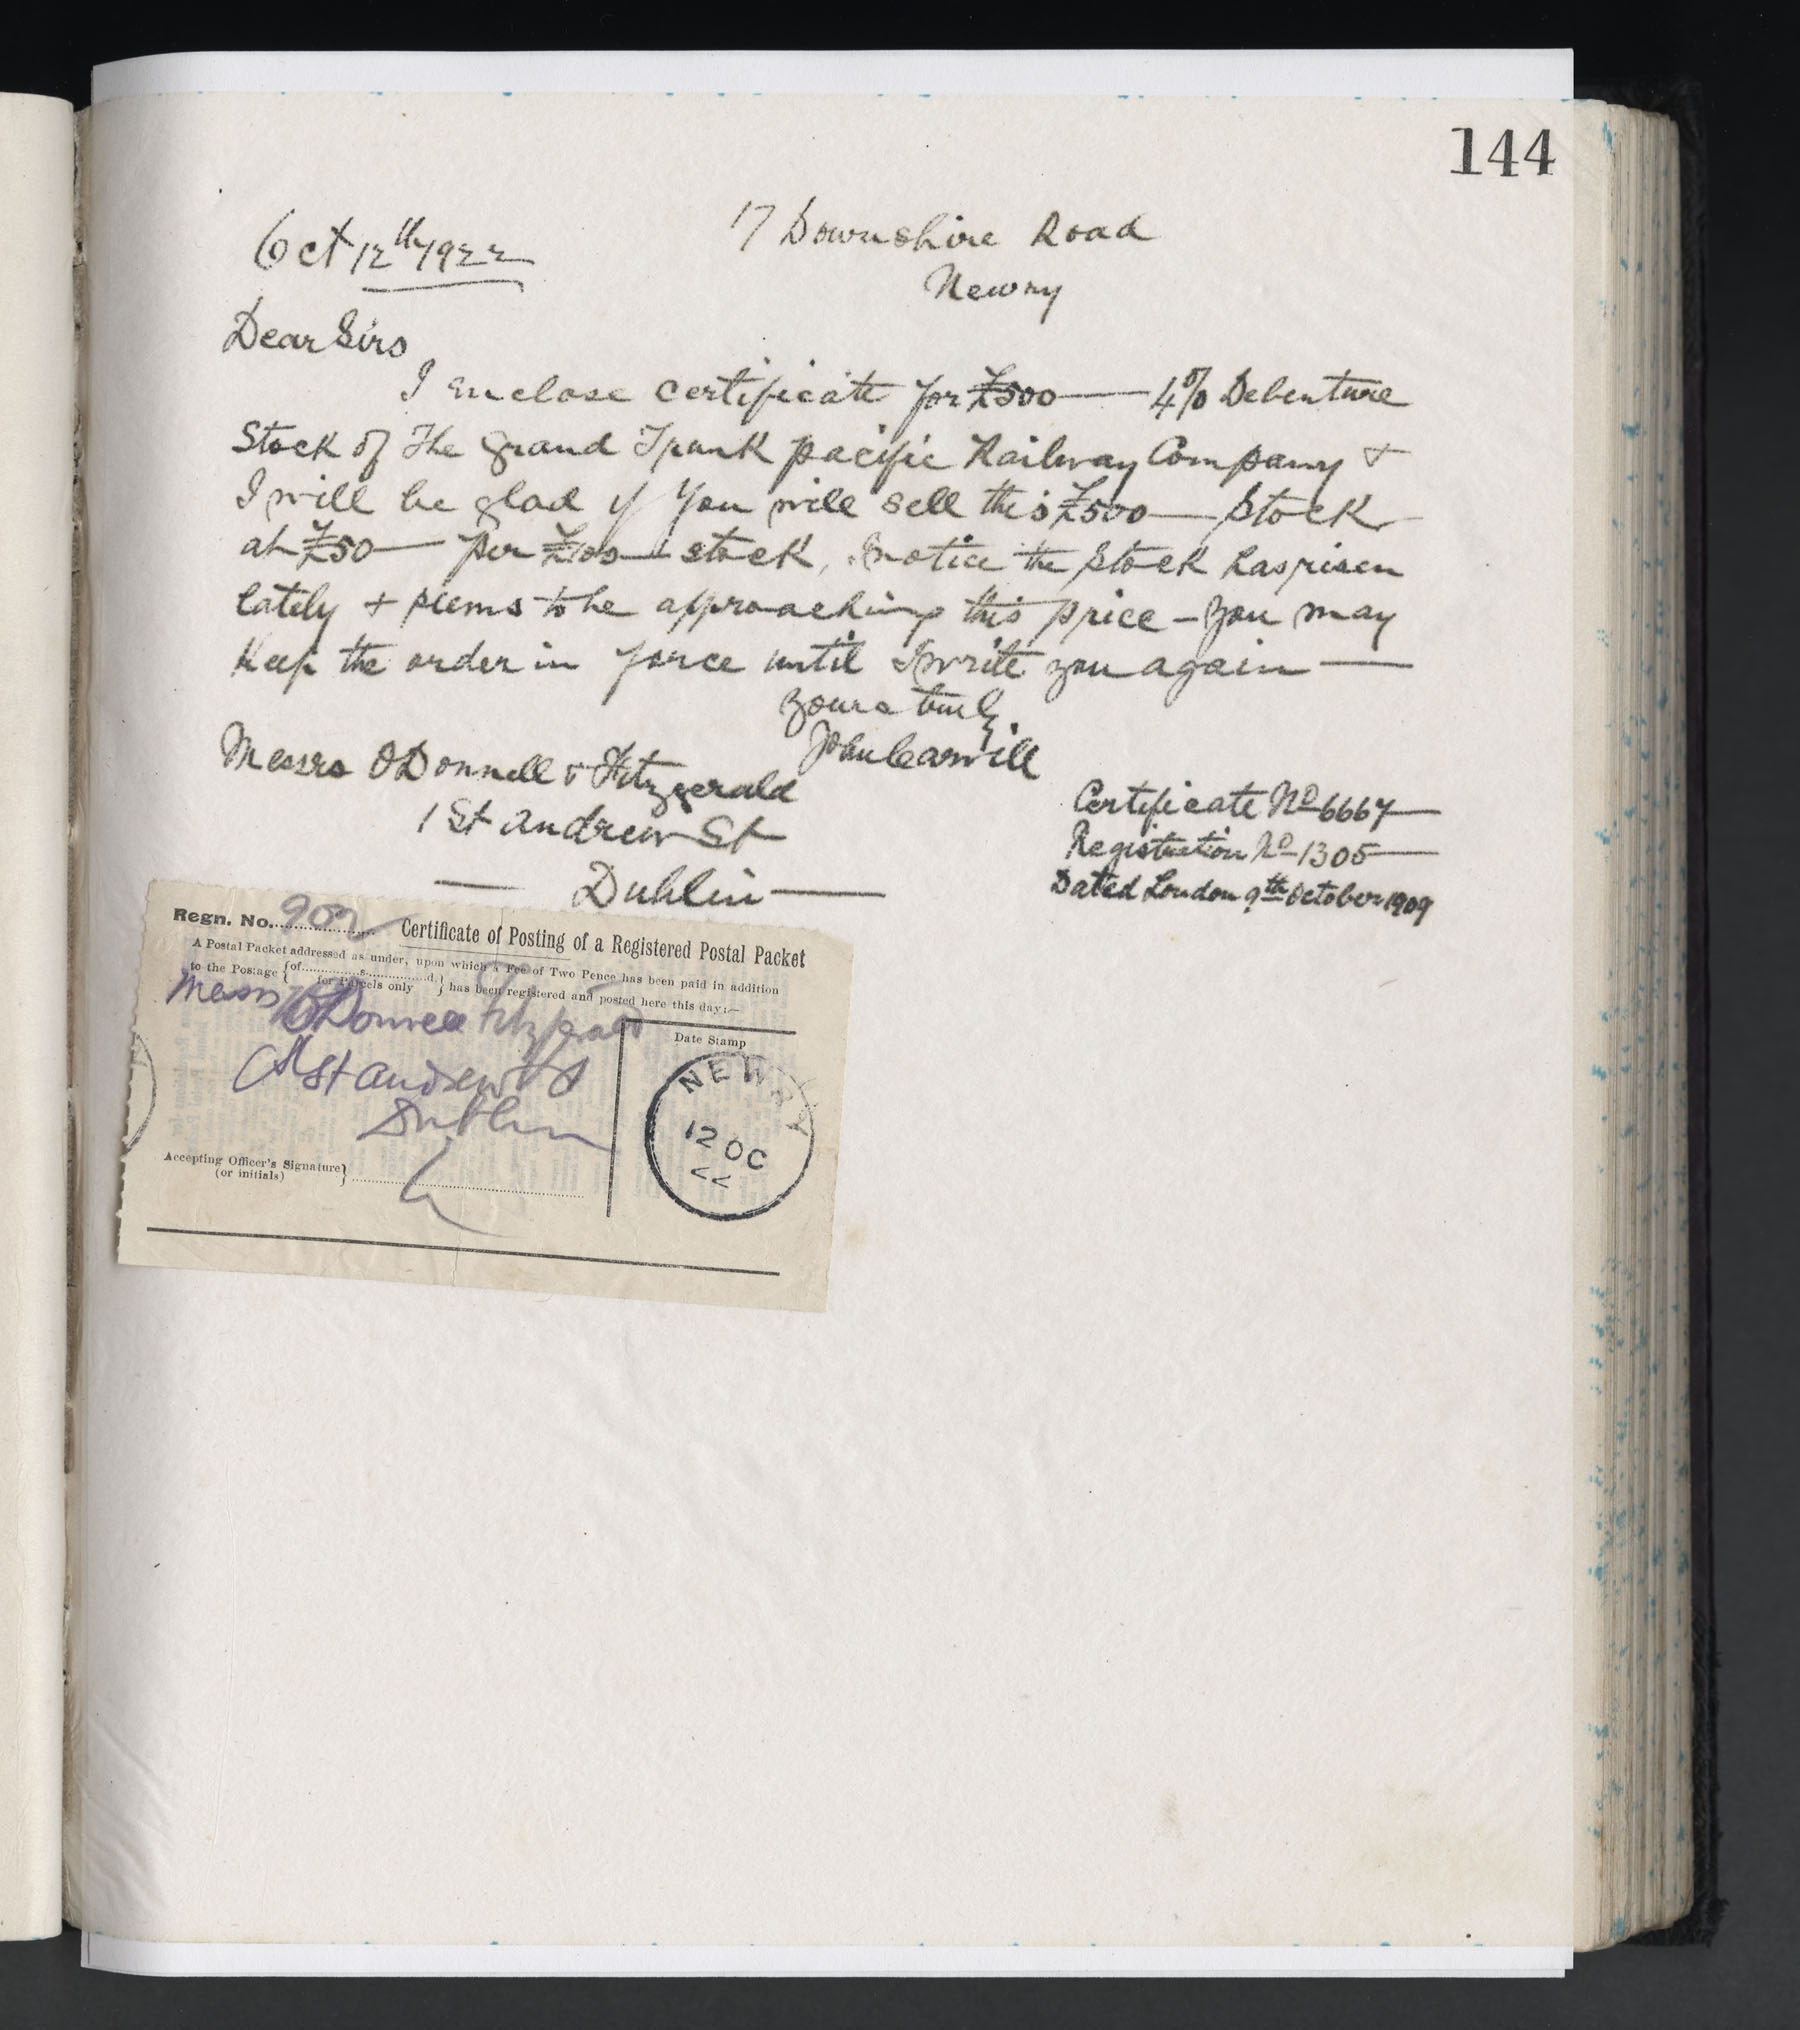 144
17 Downshire Road
Oct 12th 1922
Newry
Dear Sirs
I enclose certificate for £500 — 4% Debenture
Stock of The Grand Trunk pacific Railway Company +
I will be glad if you will sell this £500 — stock
at £50 — per £100 — stock, I notice the stock has risen
lately + seems to be approaching this price - you may
keep the order in force until I write you again —
yours truly
John Carvill
Messrs O'Donnell & Fitzgerald
1 St Andrew St
— Dublin —
Certificate No 6667 —
Registration No 1305 —
Dated London 9th October 1909
Regn. No. 902
Certificate of Posting of a Registered Postal Packet
A Postal Packet addressed as under, upon which a Fee of Two Pence has been paid in addition
to the Postage {of............s............d. for Parcels only} has been registered and posted here this day:—
Messrs O'Donnell Fitzgerald
1 St Andrew St
Dublin
Date Stamp
NEWRY
12 OC
22
Accepting Officer's Signature}
(or initials)